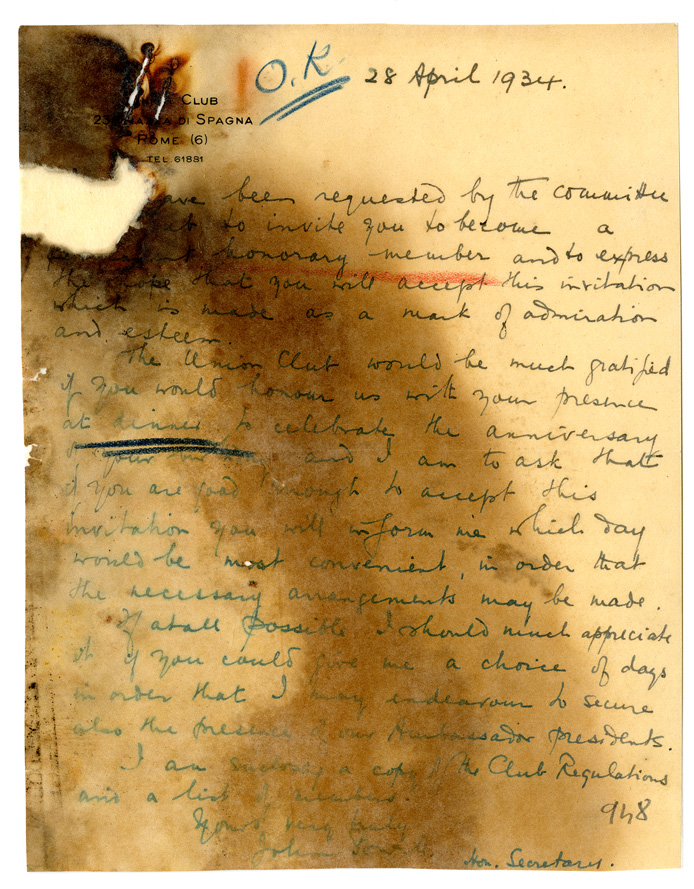 O.K.
28 April 1934.
Club
Piazza di Spagna
Rome (6)
Tel 61881
have been requested by the committee
to invite you to become a
honorary member and to express
the hope that you will accept this invitation
which is made as a mark of admiration
and esteem.
The Union Club would be much gratified
if you would honour us with your presence
at dinner to celebrate the anniversary
of your and I am to ask that
if you are good enough to accept this
invitation you will inform me which day
would be most convenient, in order that
the necessary arrangements may be made.
If at all possible I should much appreciate
it if you could give me a choice of days
in order that I may endeavour to secure
also the presence of our Ambassador presidents.
I am enclosing a copy of the Club Regulations
and a list of members.
948
Yours very truly
John
Hon. Secretary.